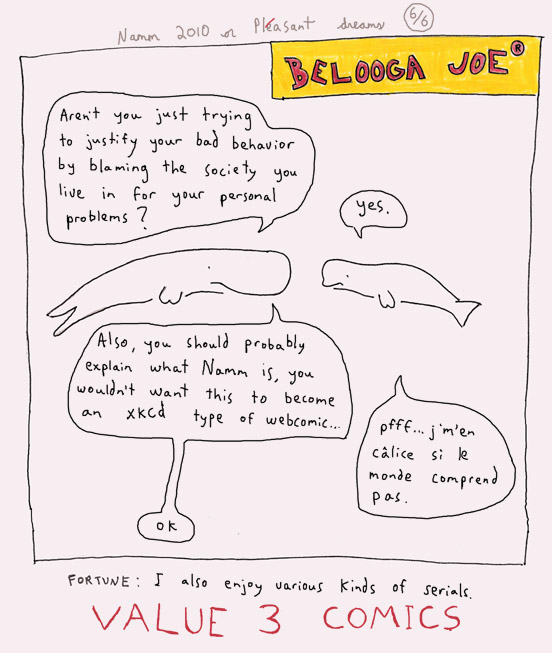 Namm 2010 or Pleasant dreams 6/6
BELOOGA JOE®
Aren't you just trying
to justify your bad behavior
by blaming the society you
live in for your personal
problems?
yes.
Also, you should probably
explain what Namm is, you
wouldn't want this to become
an xkcd type of webcomic...
pfff... j'm'en
câlice si le
monde comprend
pas.
ok
FORTUNE: I also enjoy various kinds of serials.
VALUE 3 COMICS